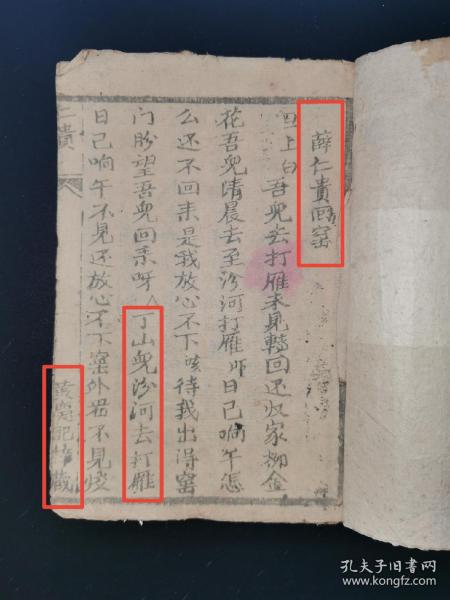 薛仁貴回窑
旦上白
吾兒去打雁未見轉回还奴家柳金
花吾兒清晨去至汾河打雁 日已晌午怎
么还不回来是我放心不下 待我出得窑
门 盼望吾兒回来呀 丁山兒汾河去打雁
日已晌午不見还放心不下窑外 不見
記 藏
仁貴
孔夫子旧书网
www.kongfz.com